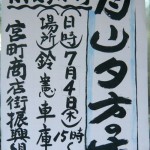 月山夕方号
日時 7月4日(木) 15時
場所 鈴憲車庫
宮町商店街振興組